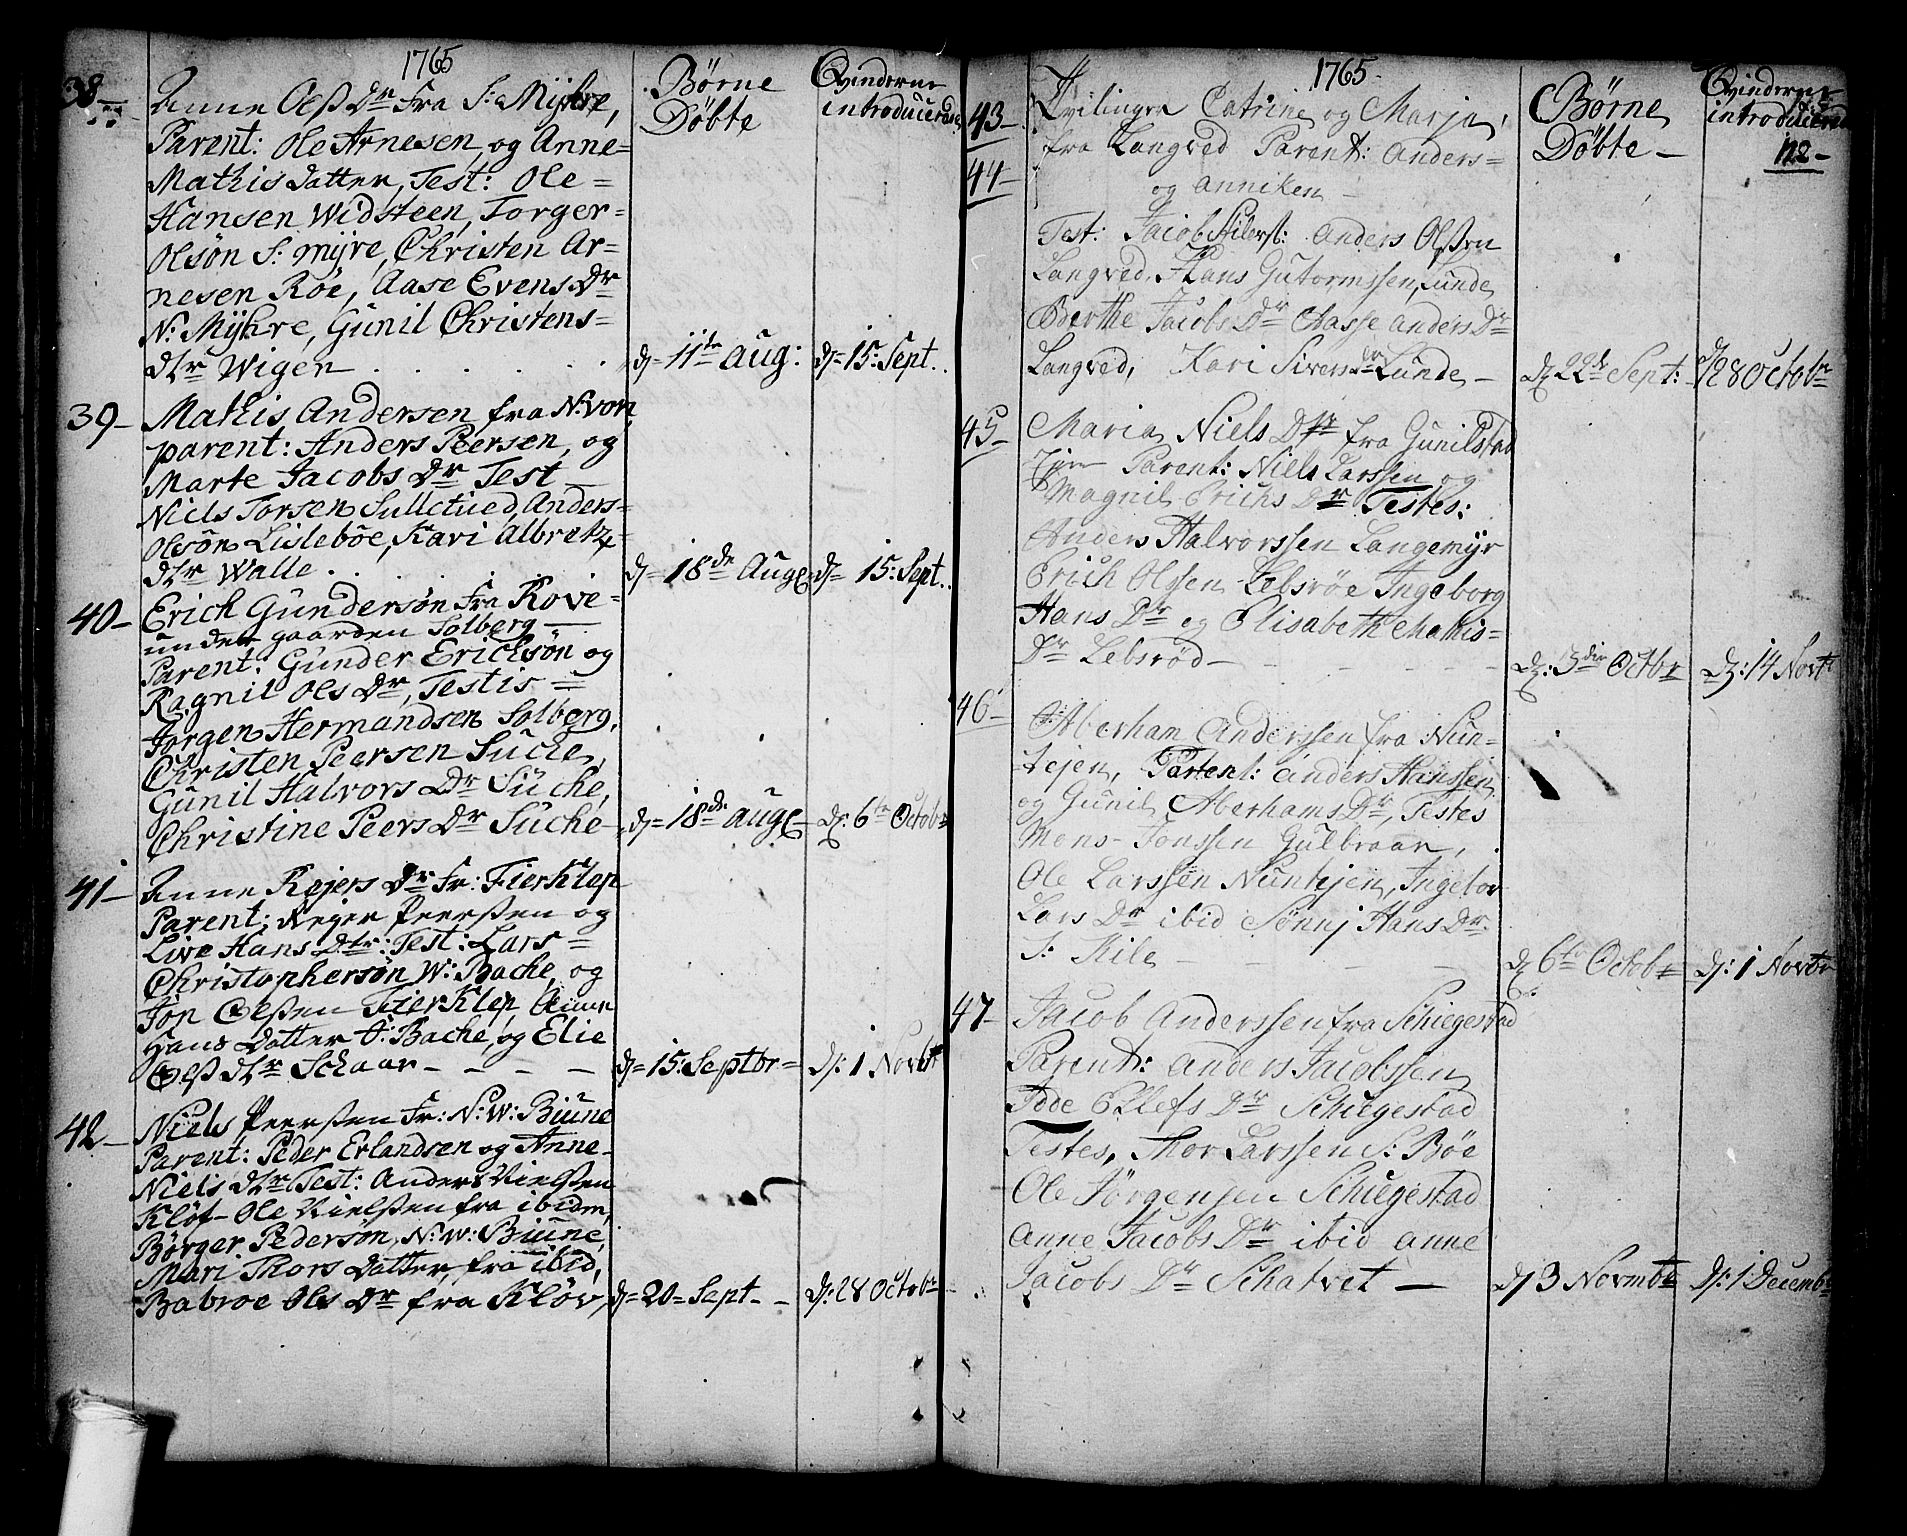 1765
Börne
Döbte
Qvinderne
introducerede
38-
Anne Olss Dr Fra S: Myhre,
Parent: Ole Arnesen og Anne=
Mathis Datter, Test: Ole=
Hansen Widsteen, Torger=
Olsön S: myre, Christen Ar=
nesen Röe, Aase Evens Dr
N: Myhre, Gunil Christens=
dtr Wigen
d= 11te Aug:
d= 15: Sept.
39-
Mathis Andersen fra N: von
parent: Anders Peersen og
Marte Jacobs Dr Test
Niels Torsen Sulletued, Anders=
Olsön Lisleböe, Kari Albretz=
dtr Walle.
d= 18de Aug
d= 15: Sept.
40-
Erich Gundersön Fra Rove=
under gaarden Solberg
Parent: Gunder Ericksön og
Ragnil Ols Dr, Testis=
Jörgen Hermandsen Solberg,
Christen Peersen Suche,
Gunil Halvors Dr Suche,
Christine Peers Dr Suche-
d= 18de Aug
d: 6te Octobr
41-
Anne Rejers Dr Fr: Fierklep
Parent: Rejer Peerssen og
Live Hans Dtr: Test: Lars=
Christophersön W: Bache, og
Jon Olssen Fierklep, Anne
Hans Datter S: Bache, og Elie
Olss dtr Schaar
d= 15: Septbr=
d: 1 Novbr
42-
Niels Peerssen Fr: N: W: Biune
Parent: Peder Erlandsen og Anne-
Niels dtr Test: Anders Nielssen
Klöf- Ole Nielssen fra ibidm,
Börger Pedersön, N: W: Biune,
Mari Thors Datter, fra ibid,
Babroe Ols Dr fra Klöv,
d= 20= Sept
d: 28 Octobr
1765.
Börne
Döbte-
Qvinderne
introducerede
112-
43-
44-
Tvilinger Catrine og Marja,
fra Langved Parent: Anders=
og Anniken-
Test: Jacob anders Olssen
Langved, Hans Gutormssen, Lunde
Berthe Jacobs Dr Aasse Anders Dr
Langved, Kari Sivers Dr Lunde-
d 22de Sept:
d 28 Octobr
45-
Maria Niels Dtr fra Gunilstad
Parent: Niels Larssen og
Magnil Erichs Dr Testes:
Anders Halvorssen Langemyr
Erich Olssen Lebsröe Ingeborg
Hans Dr og Elisabeth Mathis=
Dr Lebsröd-
d: 3die Octbr
d: 14 Novbr
46-
Aberham Anderssen fra Nun=
tejen, Parent: Anders Hanssen
og Gunil Aberhams Dr, Testes
Mons Jonssen Gulbraar,
Ole Larssen Nuntejen, Ingebor
Lars Dr ibid Sønnj Hans Dr
S: Kile
d 6te Octobr
d: 1 Novbr
47-
Jacob Anderssen fra Schiegestad
Parent: Anders Jacobssen
Tode Ellefs Dr Schiegestad
Testes, Thor Larssen S: Böe
Ole Jörgensen Schiegestad
Anne Jacobs Dr ibid Anne
Jacobs Dr Schatvet-
d 3 Novmbr
d: 1 Decembr